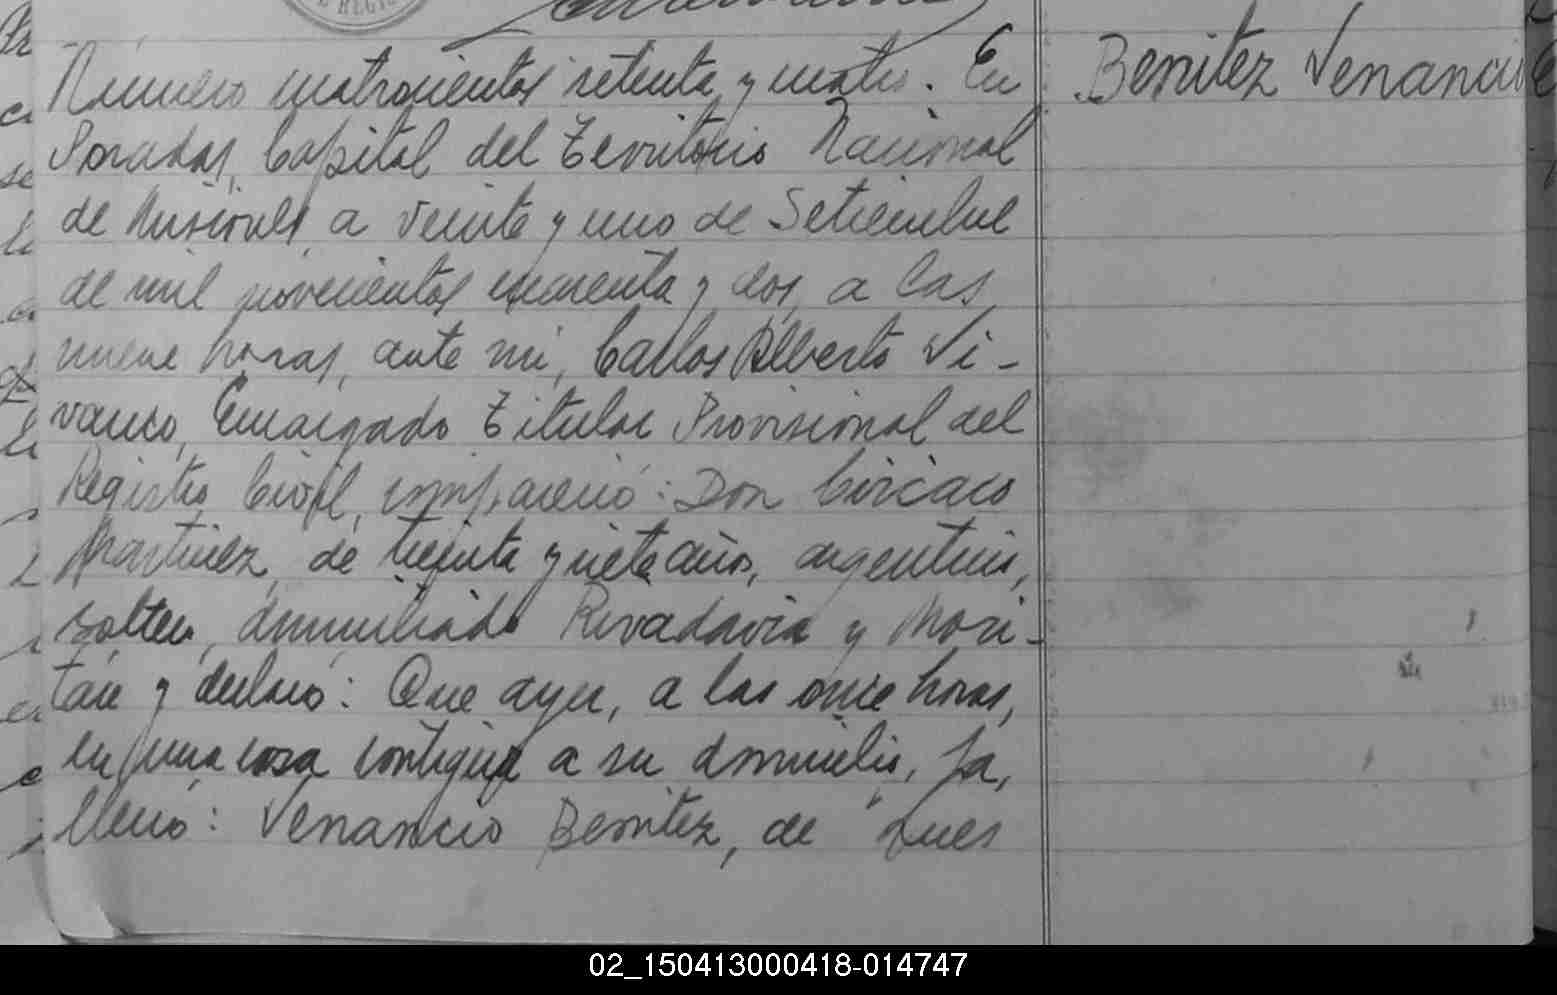 Número cuatrocientos setenta y cuatro. En
Posadas, Capital del Territorio Nacional
de Misiones, a veinte y uno de Setiembre
de mil novecientos cuarenta y dos, a las
nueve horas, ante mi, Carlos Alberto Vi-
vanco, Encargado Titular Provisional del
Registro Civil, compareció: Don Ciriaco
Martinez, de treinta y siete años, argentino,
soltero, domiciliado Rivadavia y
y declaró: Que ayer, a las once horas,
en una casa contigua a su domicilio, fa,
lleció: Venancio Benitez, de
Benitez Venancio
02_150413000418-014747